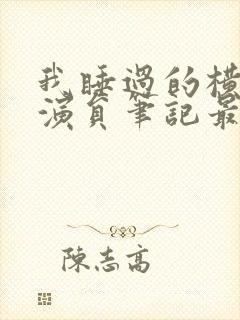 我睡過的橫
演員筆記最
陳志高